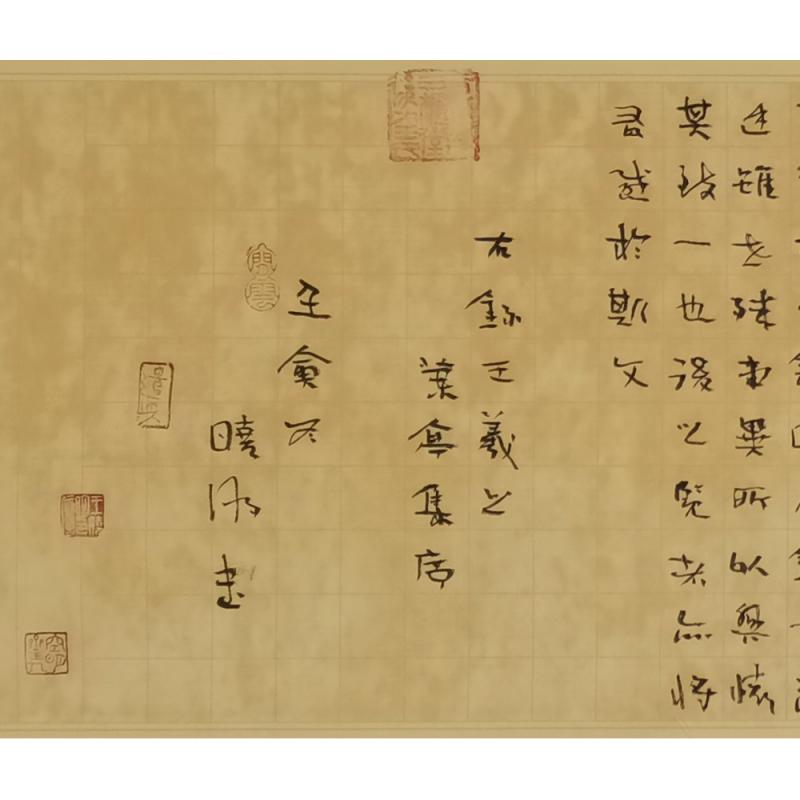 述雖世殊事異所以興懷
其致一也後之覽者亦將
有感於斯文
右錄王羲之
蘭亭集序
壬寅冬
曉書